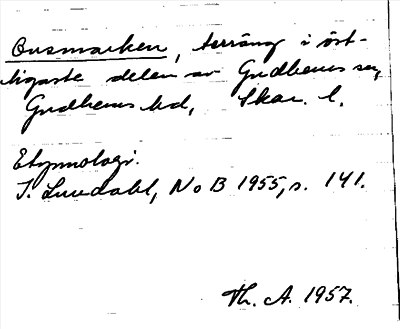 Onsmarken, terräng i öst-
ligaste delen av Gudhems sn,
Gudhems hd, Skar. l.
Etymologi:
I. Lundahl, NoB 1955, s. 141.
Th. A. 1957.